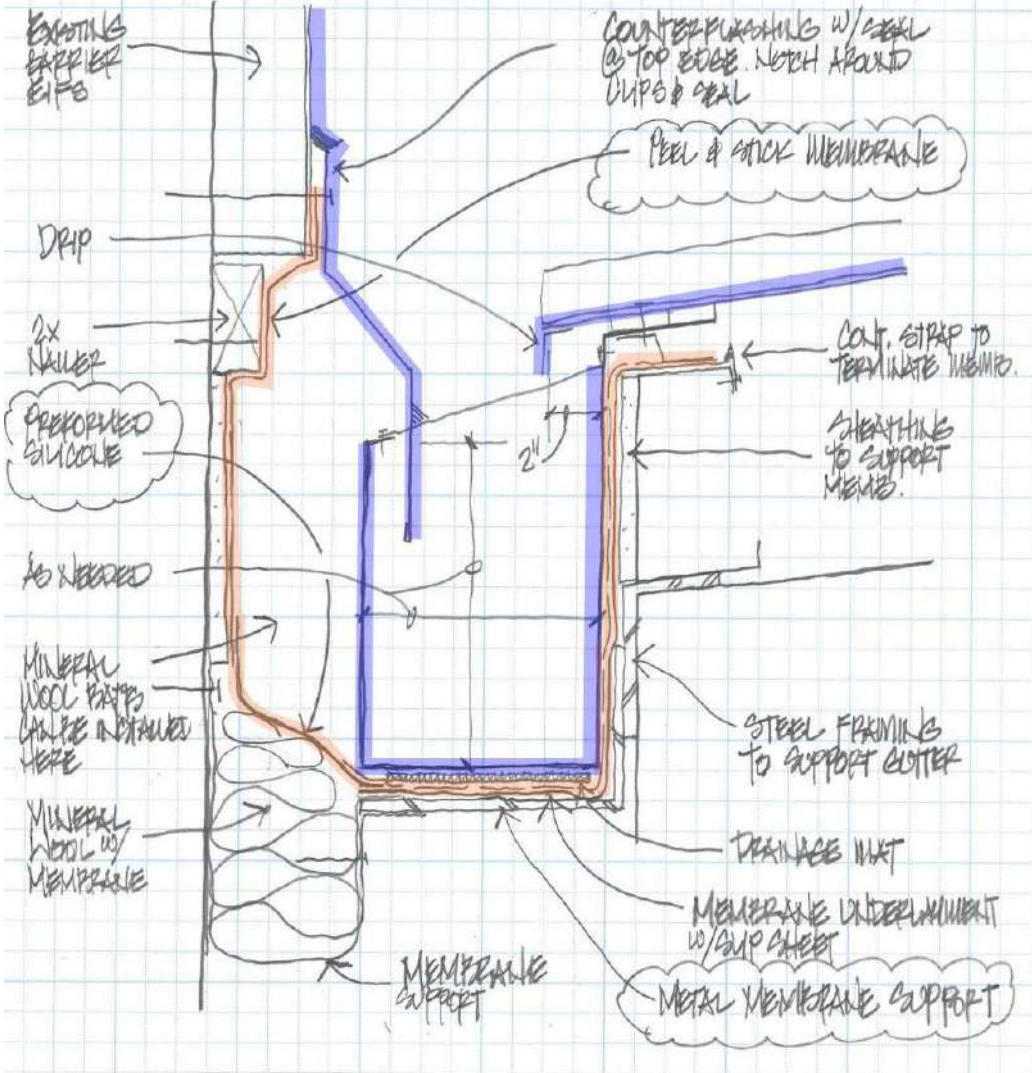 EXISTING
BARRIER
EIFS
COUNTERFLASHING W/ SEAL
@ TOP EDGE. NOTCH AROUND
CLIPS & SEAL
PEEL & STICK MEMBRANE
DRIP
2X
NAILER
CONT. STRAP TO
TERMINATE MEMB.
PREFORMED
SILICONE
2"
SHEATHING
TO SUPPORT
MEMB.
AS NEEDED
MINERAL
WOOL BATTS
CAN BE INSTALLED
HERE
STEEL FRAMING
TO SUPPORT GUTTER
MINERAL
WOOL W/
MEMBRANE
DRAINAGE MAT
MEMBRANE UNDERLAYMENT
W/ SLIP SHEET
MEMBRANE
SUPPORT
METAL MEMBRANE SUPPORT